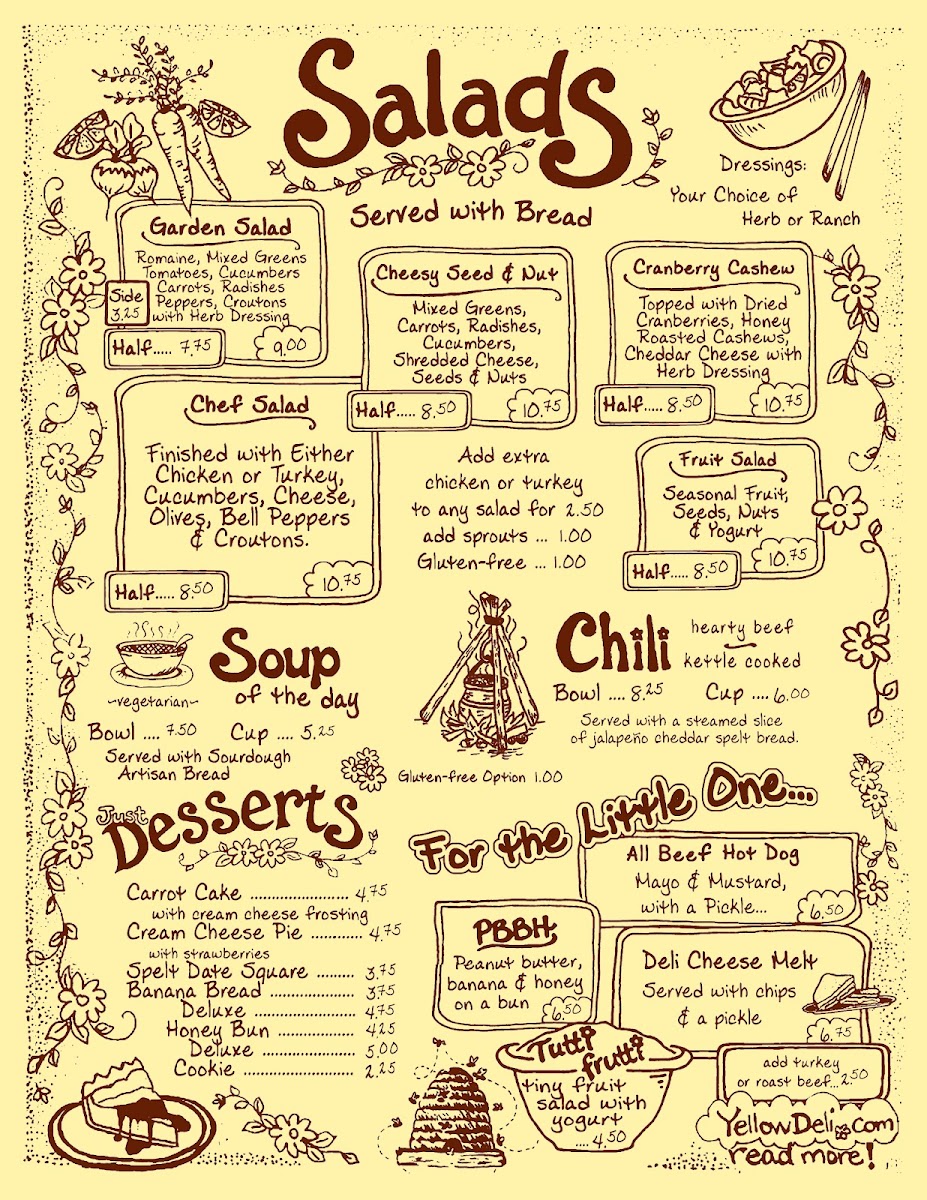 Salads
Served with Bread
Dressings:
Your Choice of
Herb or Ranch
Garden Salad
Romaine, Mixed Greens
Tomatoes, Cucumbers
Carrots, Radishes
Peppers, Croutons
with Herb Dressing
Side
3.25
Half..... 7.75
9.00
Cheesy Seed & Nut
Mixed Greens,
Carrots, Radishes,
Cucumbers,
Shredded Cheese,
Seeds & Nuts
Half..... 8.50
10.75
Cranberry Cashew
Topped with Dried
Cranberries, Honey
Roasted Cashews,
Cheddar Cheese with
Herb Dressing
Half..... 8.50
10.75
Chef Salad
Finished with Either
Chicken or Turkey,
Cucumbers, Cheese,
Olives, Bell Peppers
& Croutons.
Half..... 8.50
10.75
Add extra
chicken or turkey
to any salad for 2.50
add sprouts ... 1.00
Gluten-free ... 1.00
Fruit Salad
Seasonal Fruit,
Seeds, Nuts
& Yogurt
Half..... 8.50
10.75
Soup
of the day
~vegetarian~
Bowl .... 7.50 Cup .... 5.25
Served with Sourdough
Artisan Bread
Chili
hearty beef
kettle cooked
Bowl .... 8.25 Cup .... 6.00
Served with a steamed slice
of jalapeño cheddar spelt bread.
Gluten-free Option 1.00
Just
Desserts
Carrot Cake ...................... 4.75
with cream cheese frosting
Cream Cheese Pie ............ 4.75
with strawberries
Spelt Date Square ......... 3.75
Banana Bread ................... 3.75
Deluxe ..................... 4.75
Honey Bun ................. 4.25
Deluxe ..................... 5.00
Cookie ............................ 2.25
For the Little One...
All Beef Hot Dog
Mayo & Mustard,
with a Pickle...
6.50
PBBH
Peanut butter,
banana & honey
on a bun
6.50
Deli Cheese Melt
Served with chips
& a pickle
6.75
add turkey
or roast beef...2.50
Tutti
frutti
tiny fruit
salad with
yogurt
.... 4.50
YellowDeli.com
read more!